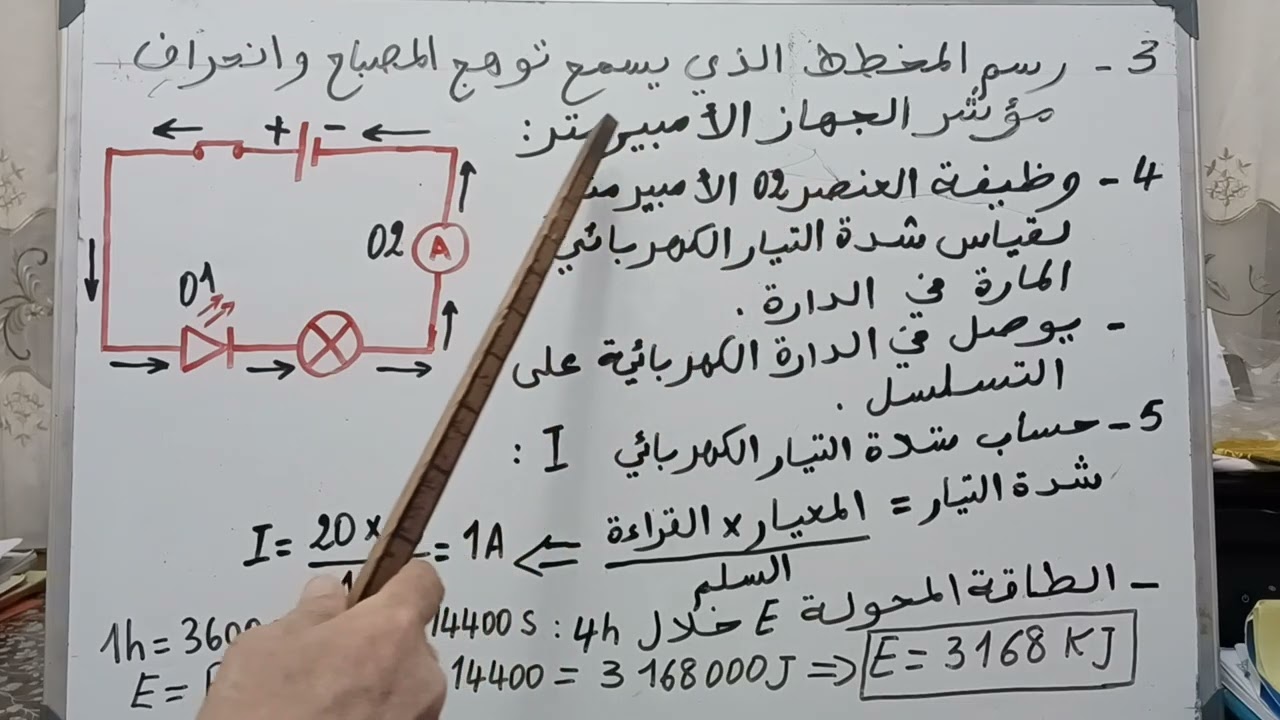 3 - رسم المخطط الذي يسمح توهج المصباح وانحراف
مؤشر الجهاز الأمبير متر :
4 - وظيفة العنصر 02 الأمبير
لقياس شدة التيار الكهربائي
المارة في الدارة .
- يوصل في الدارة الكهربائية على
التسلسل .
+ -
02 A
01
5 - حساب شدة التيار الكهربائي I :
شدة التيار = المعيار × القراءة
السلم
I = 20 ×
= 1A ⇐
- الطاقة المحولة E خلال 4h :
1h = 3600 14400 S
E = 14400 = 3 168 000 J ⇒ E = 3168 KJ